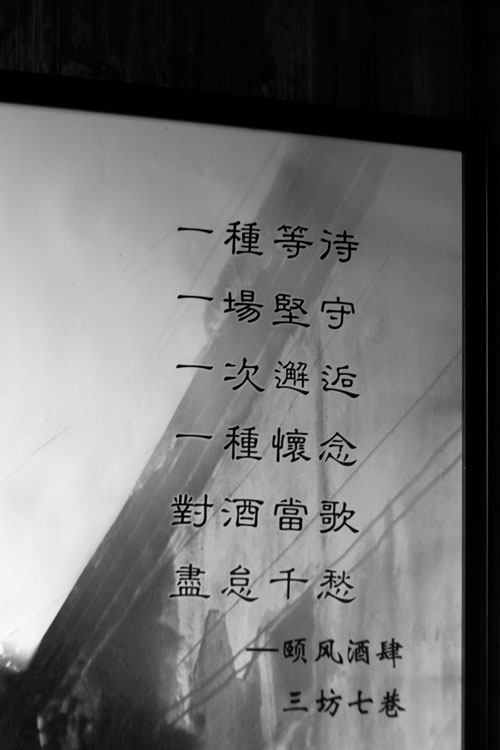 一種等待
一場堅守
一次邂逅
一種懷念
對酒當歌
盡怠千愁
—颐风酒肆
三坊七巷